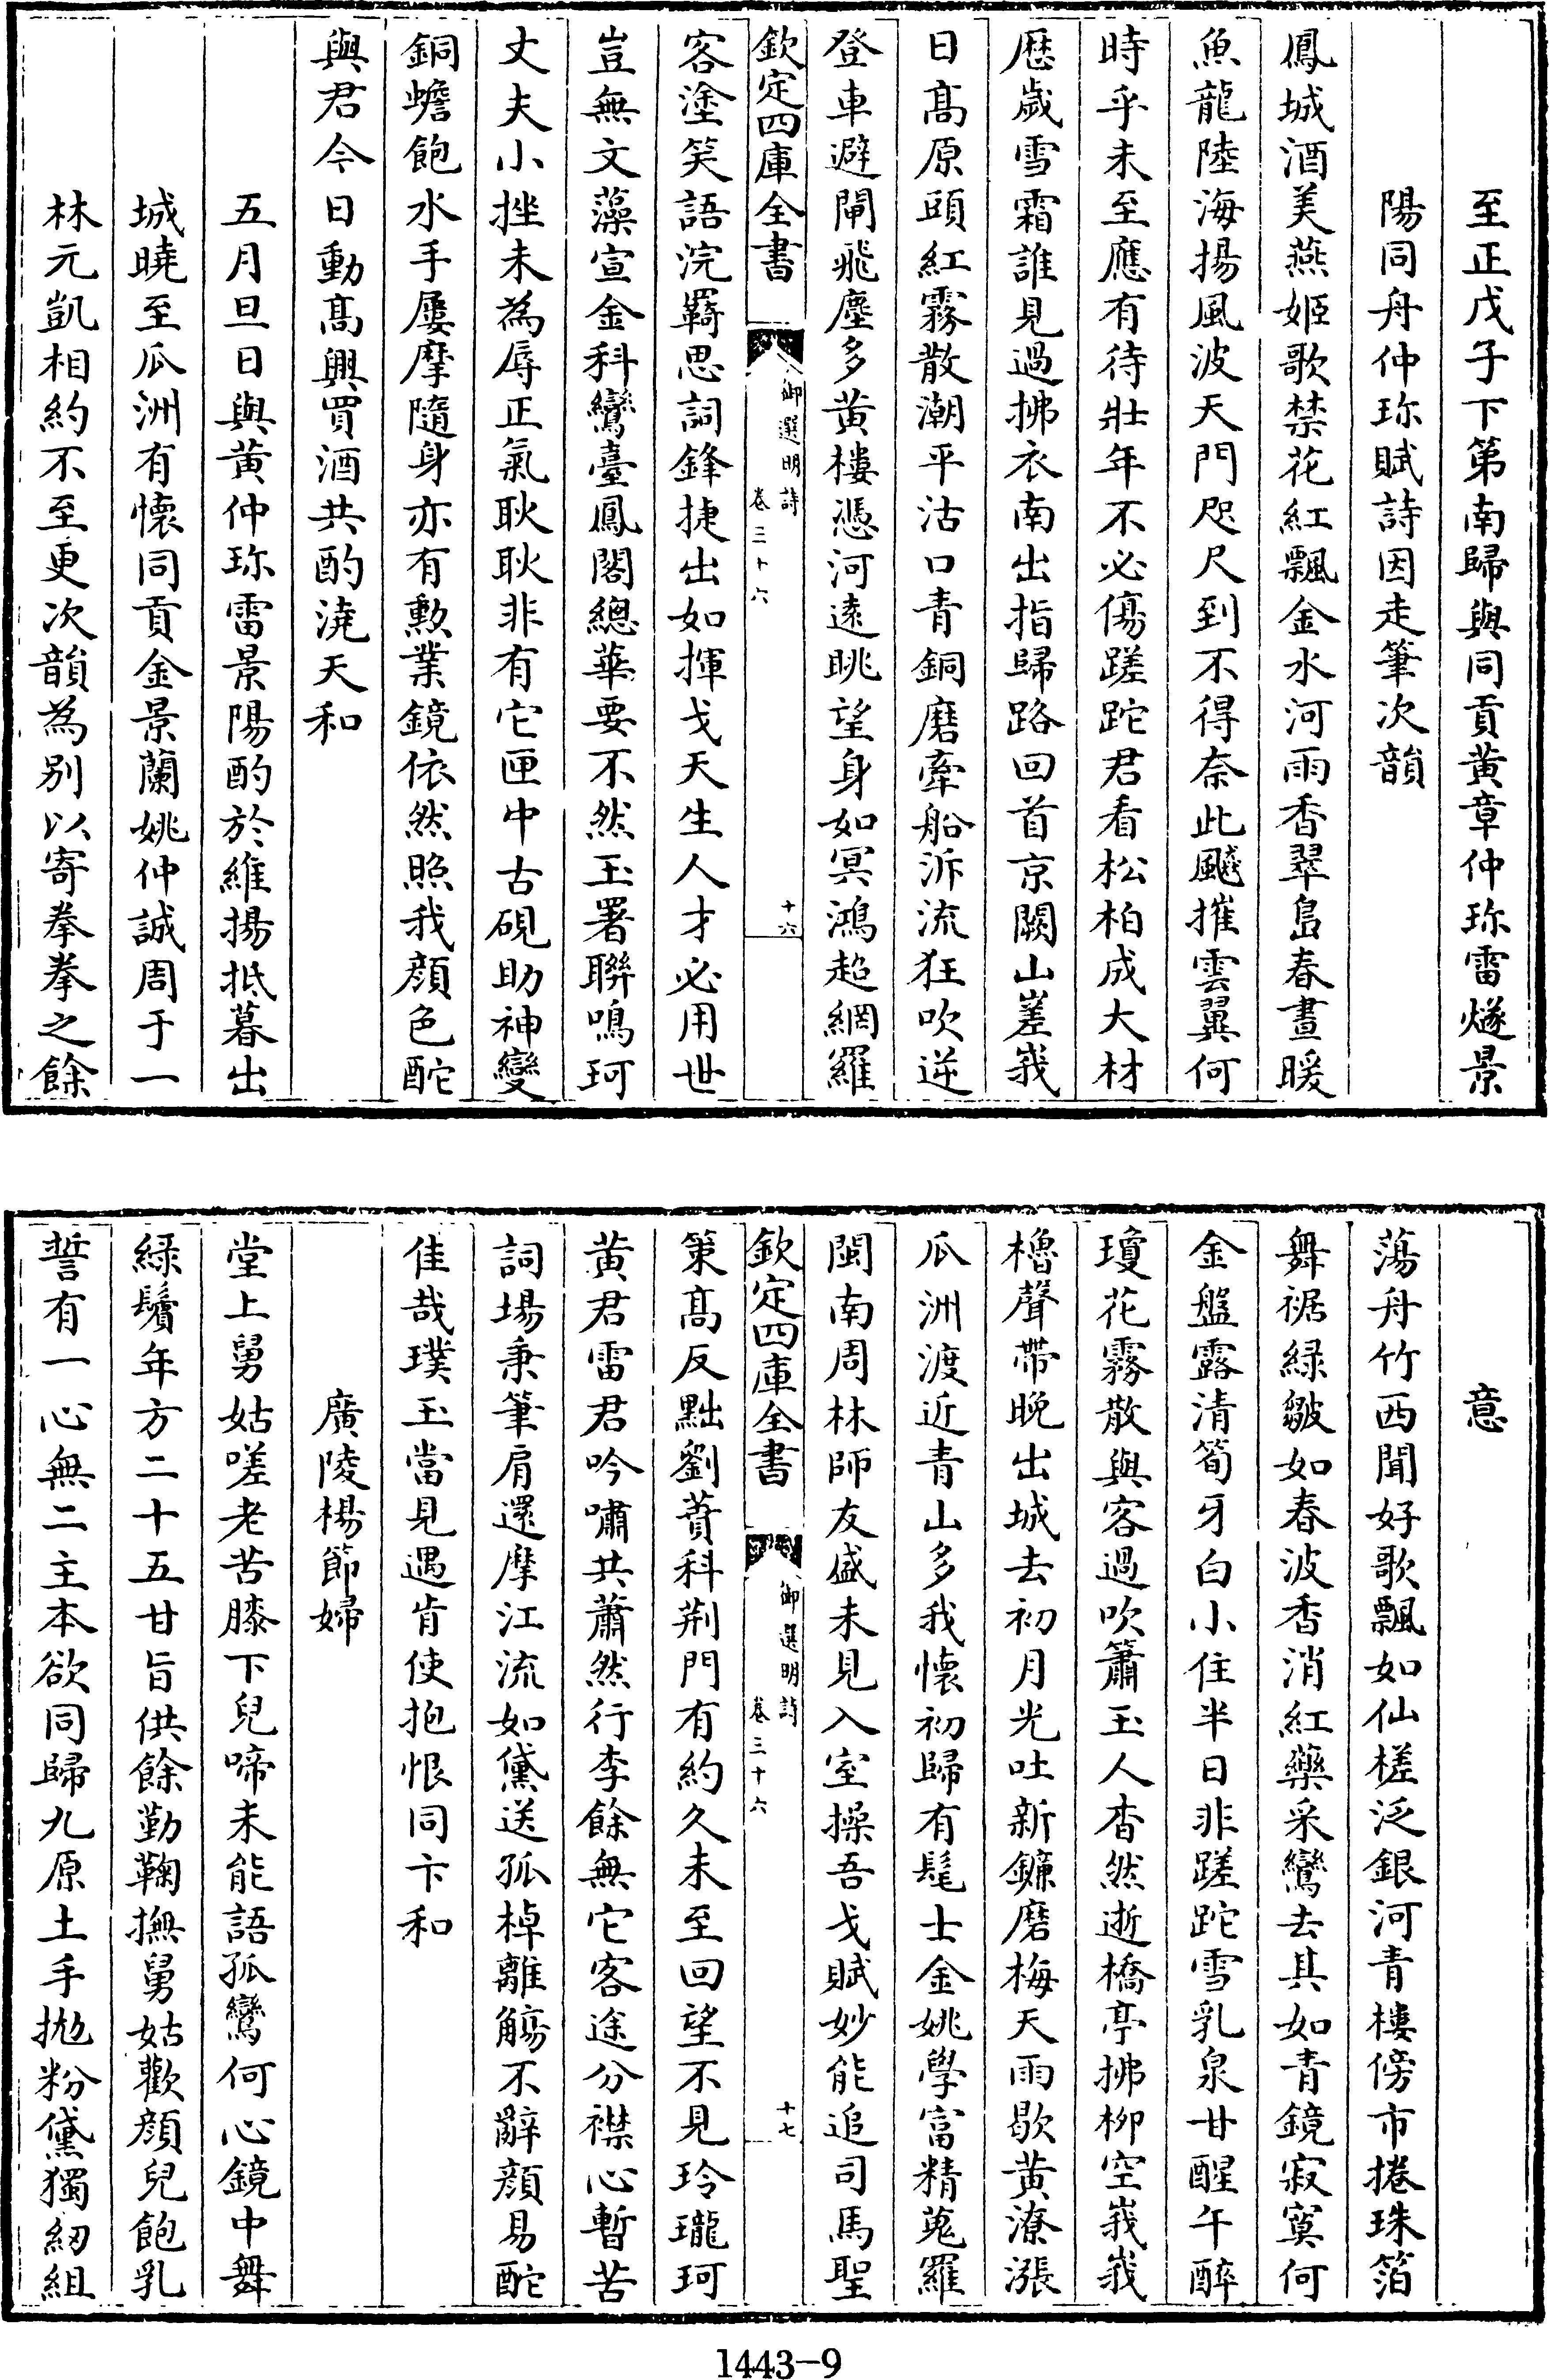 至正戊子下第南歸與同貢黃章仲珎雷燧景
陽同舟仲珎賦詩因走筆次韻
鳳城酒美燕姬歌禁花紅飄金水河雨香翠島春晝暖
魚龍陸海揚風波天門咫尺到不得奈此颷摧雲翼何
時乎未至應有待壯年不必傷蹉跎君看松柏成大材
歴歲雪霜誰見過拂衣南出指歸路回首京闕山嵳峩
日髙原頭紅霧散潮平沽口青銅磨牽船泝流狂吹逆
登車避閘飛塵多黃樓憑河遠眺望身如冥鴻超網羅
欽定四庫全書
御選明詩
卷三十六
十六
客塗笑語浣羇思詞鋒捷出如揮戈天生人才必用世
豈無文藻宣金科鸞臺鳳閣總華要不然玉署聯鳴珂
丈夫小挫未為辱正氣耿耿非有它匣中古硯助神變
銅蟾飽水手屢摩隨身亦有勲業鏡依然照我顔色酡
與君今日動髙興買酒共酌澆天和
五月旦日與黃仲珎雷景陽酌於維揚抵暮出
城曉至瓜洲有懷同貢金景蘭姚仲誠周于一
林元凱相約不至更次韻為別以寄拳拳之餘
意
蕩舟竹西聞好歌飄如仙槎泛銀河青樓傍市捲珠箔
舞裾緑皺如春波香消紅藥采鸞去其如青鏡寂寞何
金盤露清筍牙白小住半日非蹉跎雪乳泉甘醒午醉
瓊花霧散與客過吹簫玉人杳然逝橋亭拂柳空峩峩
櫓聲帶晚出城去初月光吐新鐮磨梅天雨歇黃潦漲
瓜洲渡近青山多我懷初歸有髦士金姚學富精蒐羅
閩南周林師友盛未見入室操吾戈賦妙能追司馬聖
欽定四庫全書
御選明詩
卷三十六
十七
策髙反黜劉蕡科荆門有約久未至回望不見玲瓏珂
黃君雷君吟嘯共蕭然行李餘無它客途分襟心暫苦
詞場秉筆肩還摩江流如黛送孤棹離觴不辭顔易酡
佳哉璞玉當見遇肯使抱恨同卞和
廣陵楊節婦
堂上舅姑嗟老苦膝下兒啼未能語孤鸞何心鏡中舞
緑鬢年方二十五甘旨供餘勤鞠撫舅姑歡顔兒飽乳
誓有一心無二主本欲同歸九原土手抛粉黛獨紉組
1443-9